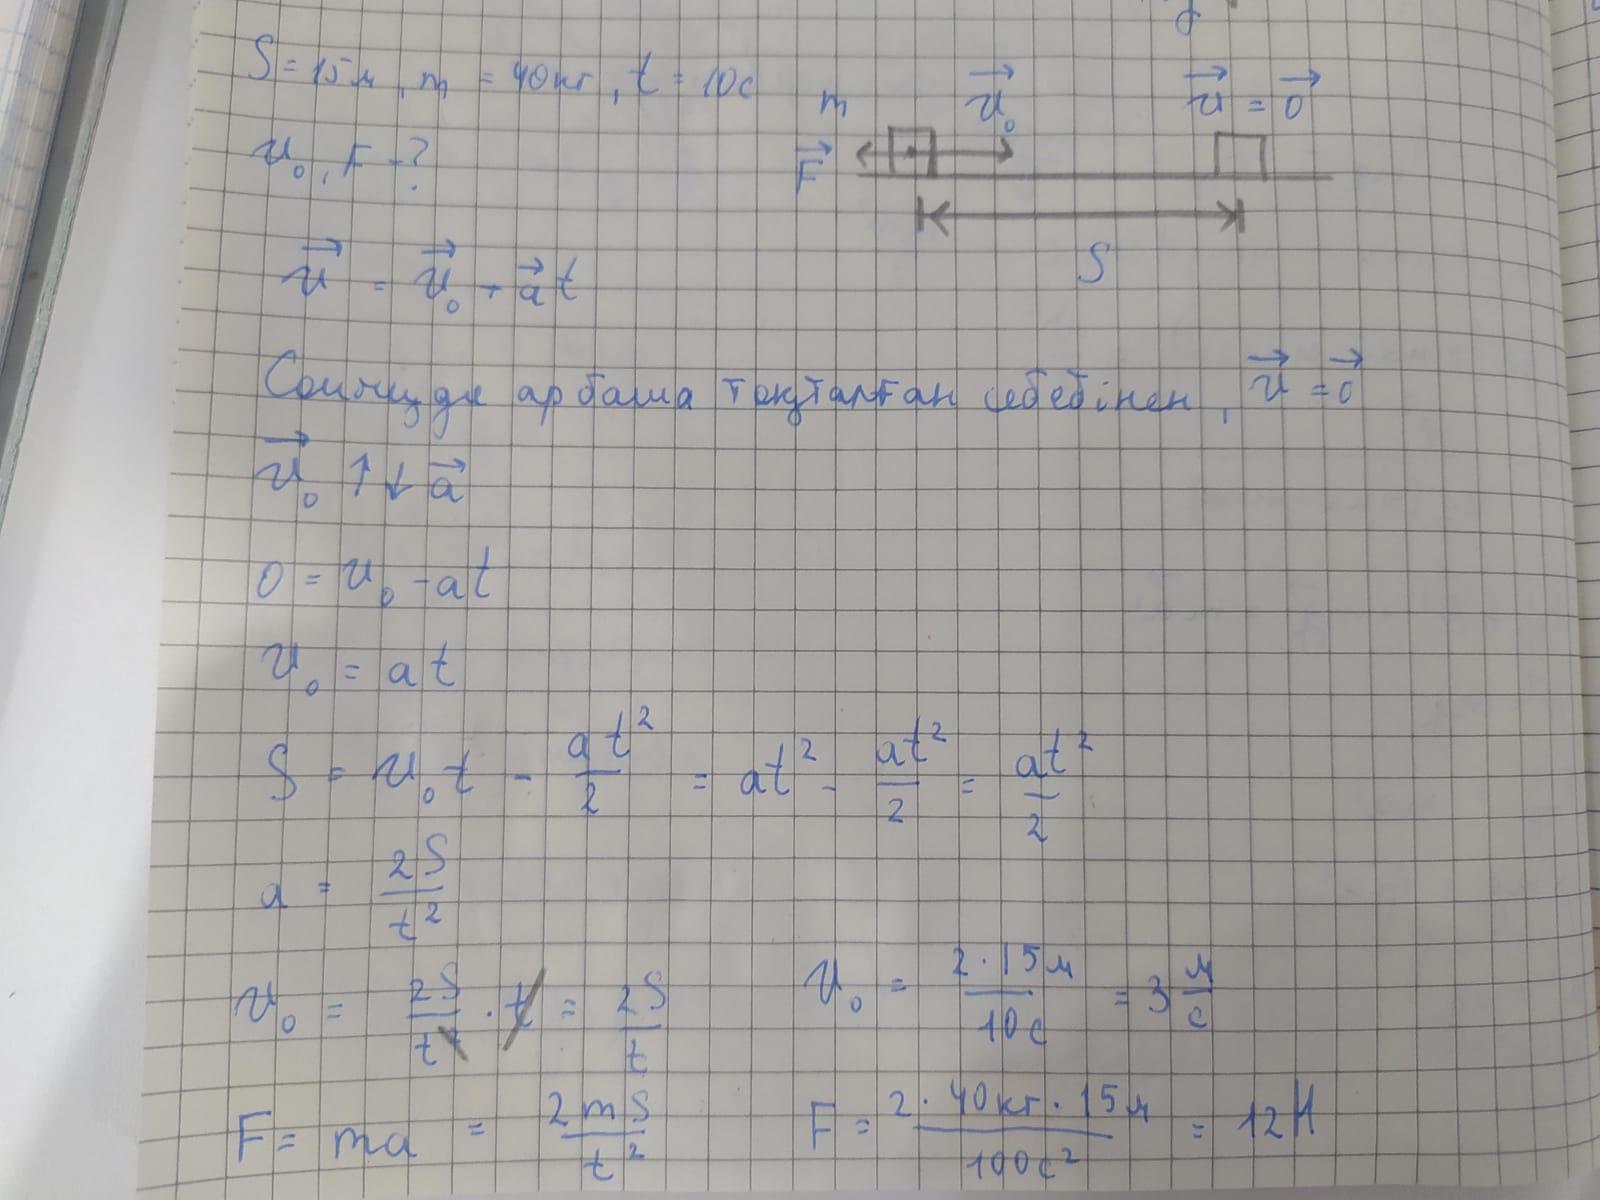 S = 15м, m = 40кг, t = 10с
m
v⃗₀
v⃗ = 0⃗
v₀, F - ?
F⃗
S
v⃗ = v⃗₀ + a⃗t
арбаша тоқталған себебінен, v⃗ = 0⃗
v⃗₀ ↑↓ a⃗
0 = v₀ - at
v₀ = at
S = v₀t - at²/2 = at² - at²/2 = at²/2
a = 2S/t²
v₀ = 2S/t² · t = 2S/t
v₀ = 2·15м/10с = 3 м/с
F = ma = 2mS/t²
F = 2·40кг·15м/100с² = 12Н